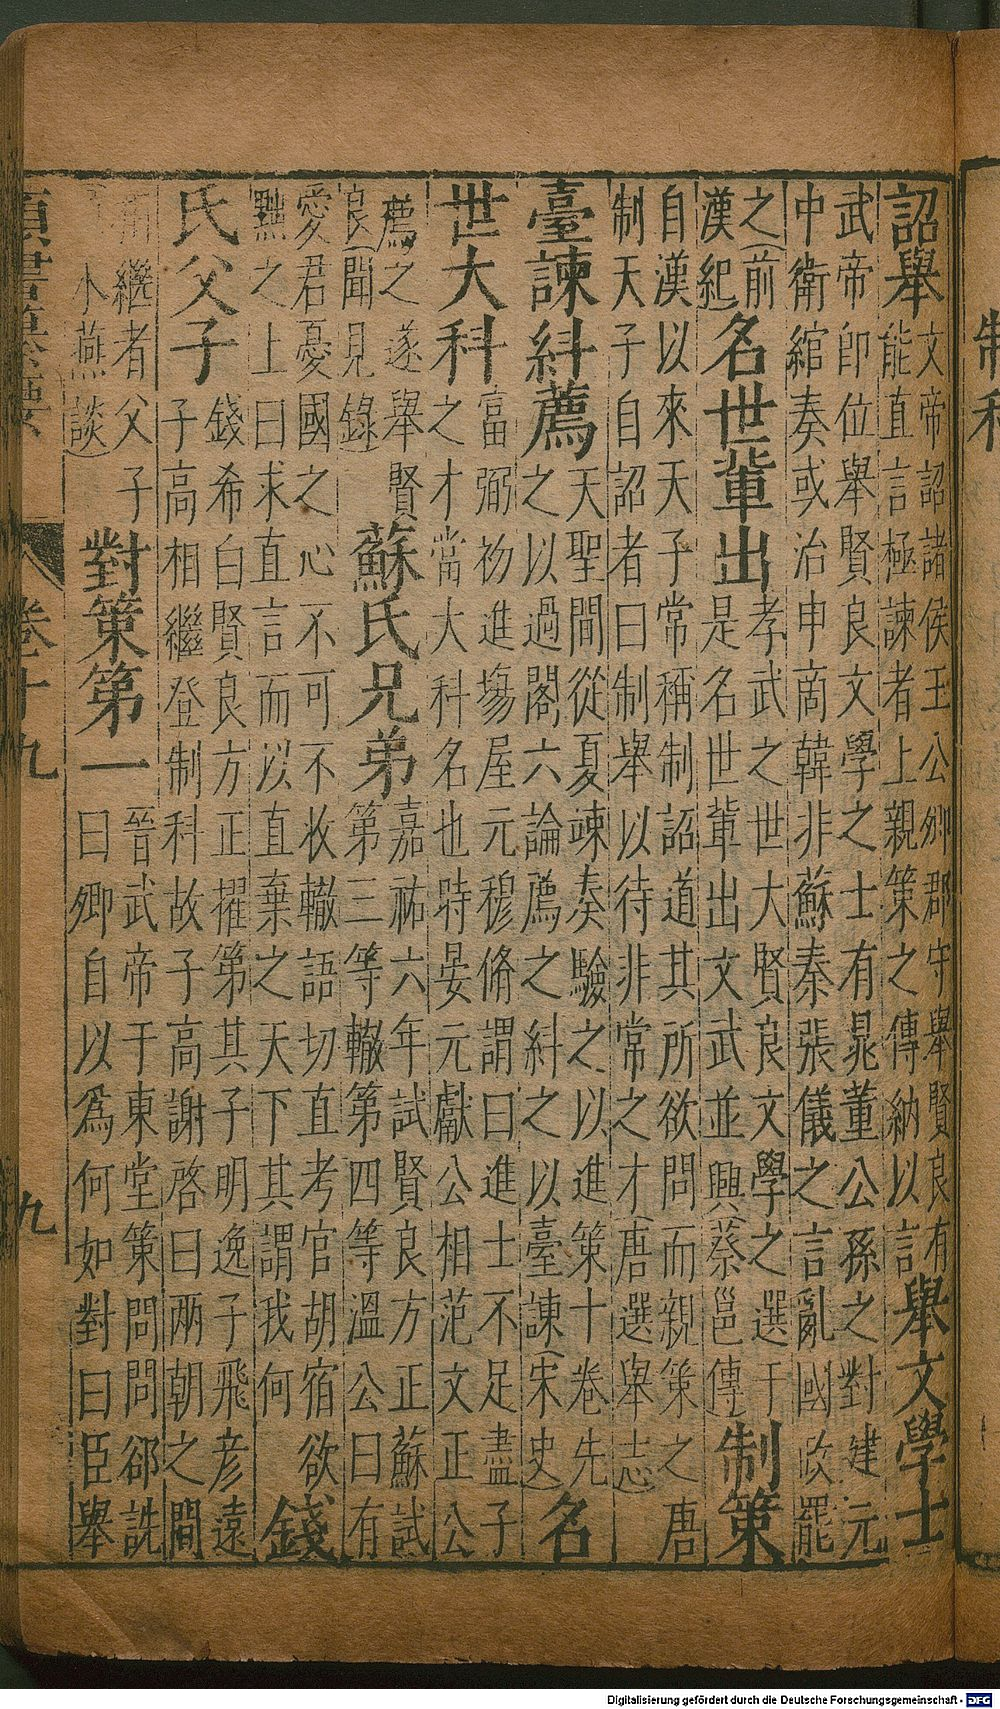 制科
詔舉
文帝詔諸侯王公卿郡守舉賢良有
能直言極諫者上親策之傳納以言
舉文學士
武帝即位舉賢良文學之士有晁董公孫之對建元
中衛綰奏或治申商韓非蘇秦張儀之言亂國政罷
之(前
漢紀
名世輩出
孝武之世大賢良文學之選于
是名世輩出文武並興(蔡邕傳)
制策
自漢以來天子常稱制詔道其所欲問而親策之唐
制天子自詔者曰制舉以待非常之才(唐選舉志
臺諫糾薦
天聖間從夏竦奏驗之以進策十卷先
之以過閣六論薦之糾之以臺諫(宋史)
名
世大科
富弼初進場屋元穆脩謂曰進士不足盡子
之才當大科名也時晏元獻公相范文正公
薦之遂舉賢
良(聞見錄)
蘇氏兄弟
嘉祐六年試賢良方正蘇試
第三等轍第四等溫公曰有
愛君憂國之心不可不收轍語切直考官胡宿欲
黜之上曰求直言而以直棄之天下其謂我何
錢
氏父子
錢希白賢良方正擢第其子明逸子飛彥遠
子高相繼登制科故子高謝啓曰兩朝之間
繼者父子
小燕談)
對策第一
晉武帝于東堂策問問郤詵
曰卿自以爲何如對曰臣舉
類書纂要
卷十九
九
Digitalisierung gefördert durch die Deutsche Forschungsgemeinschaft - DFG